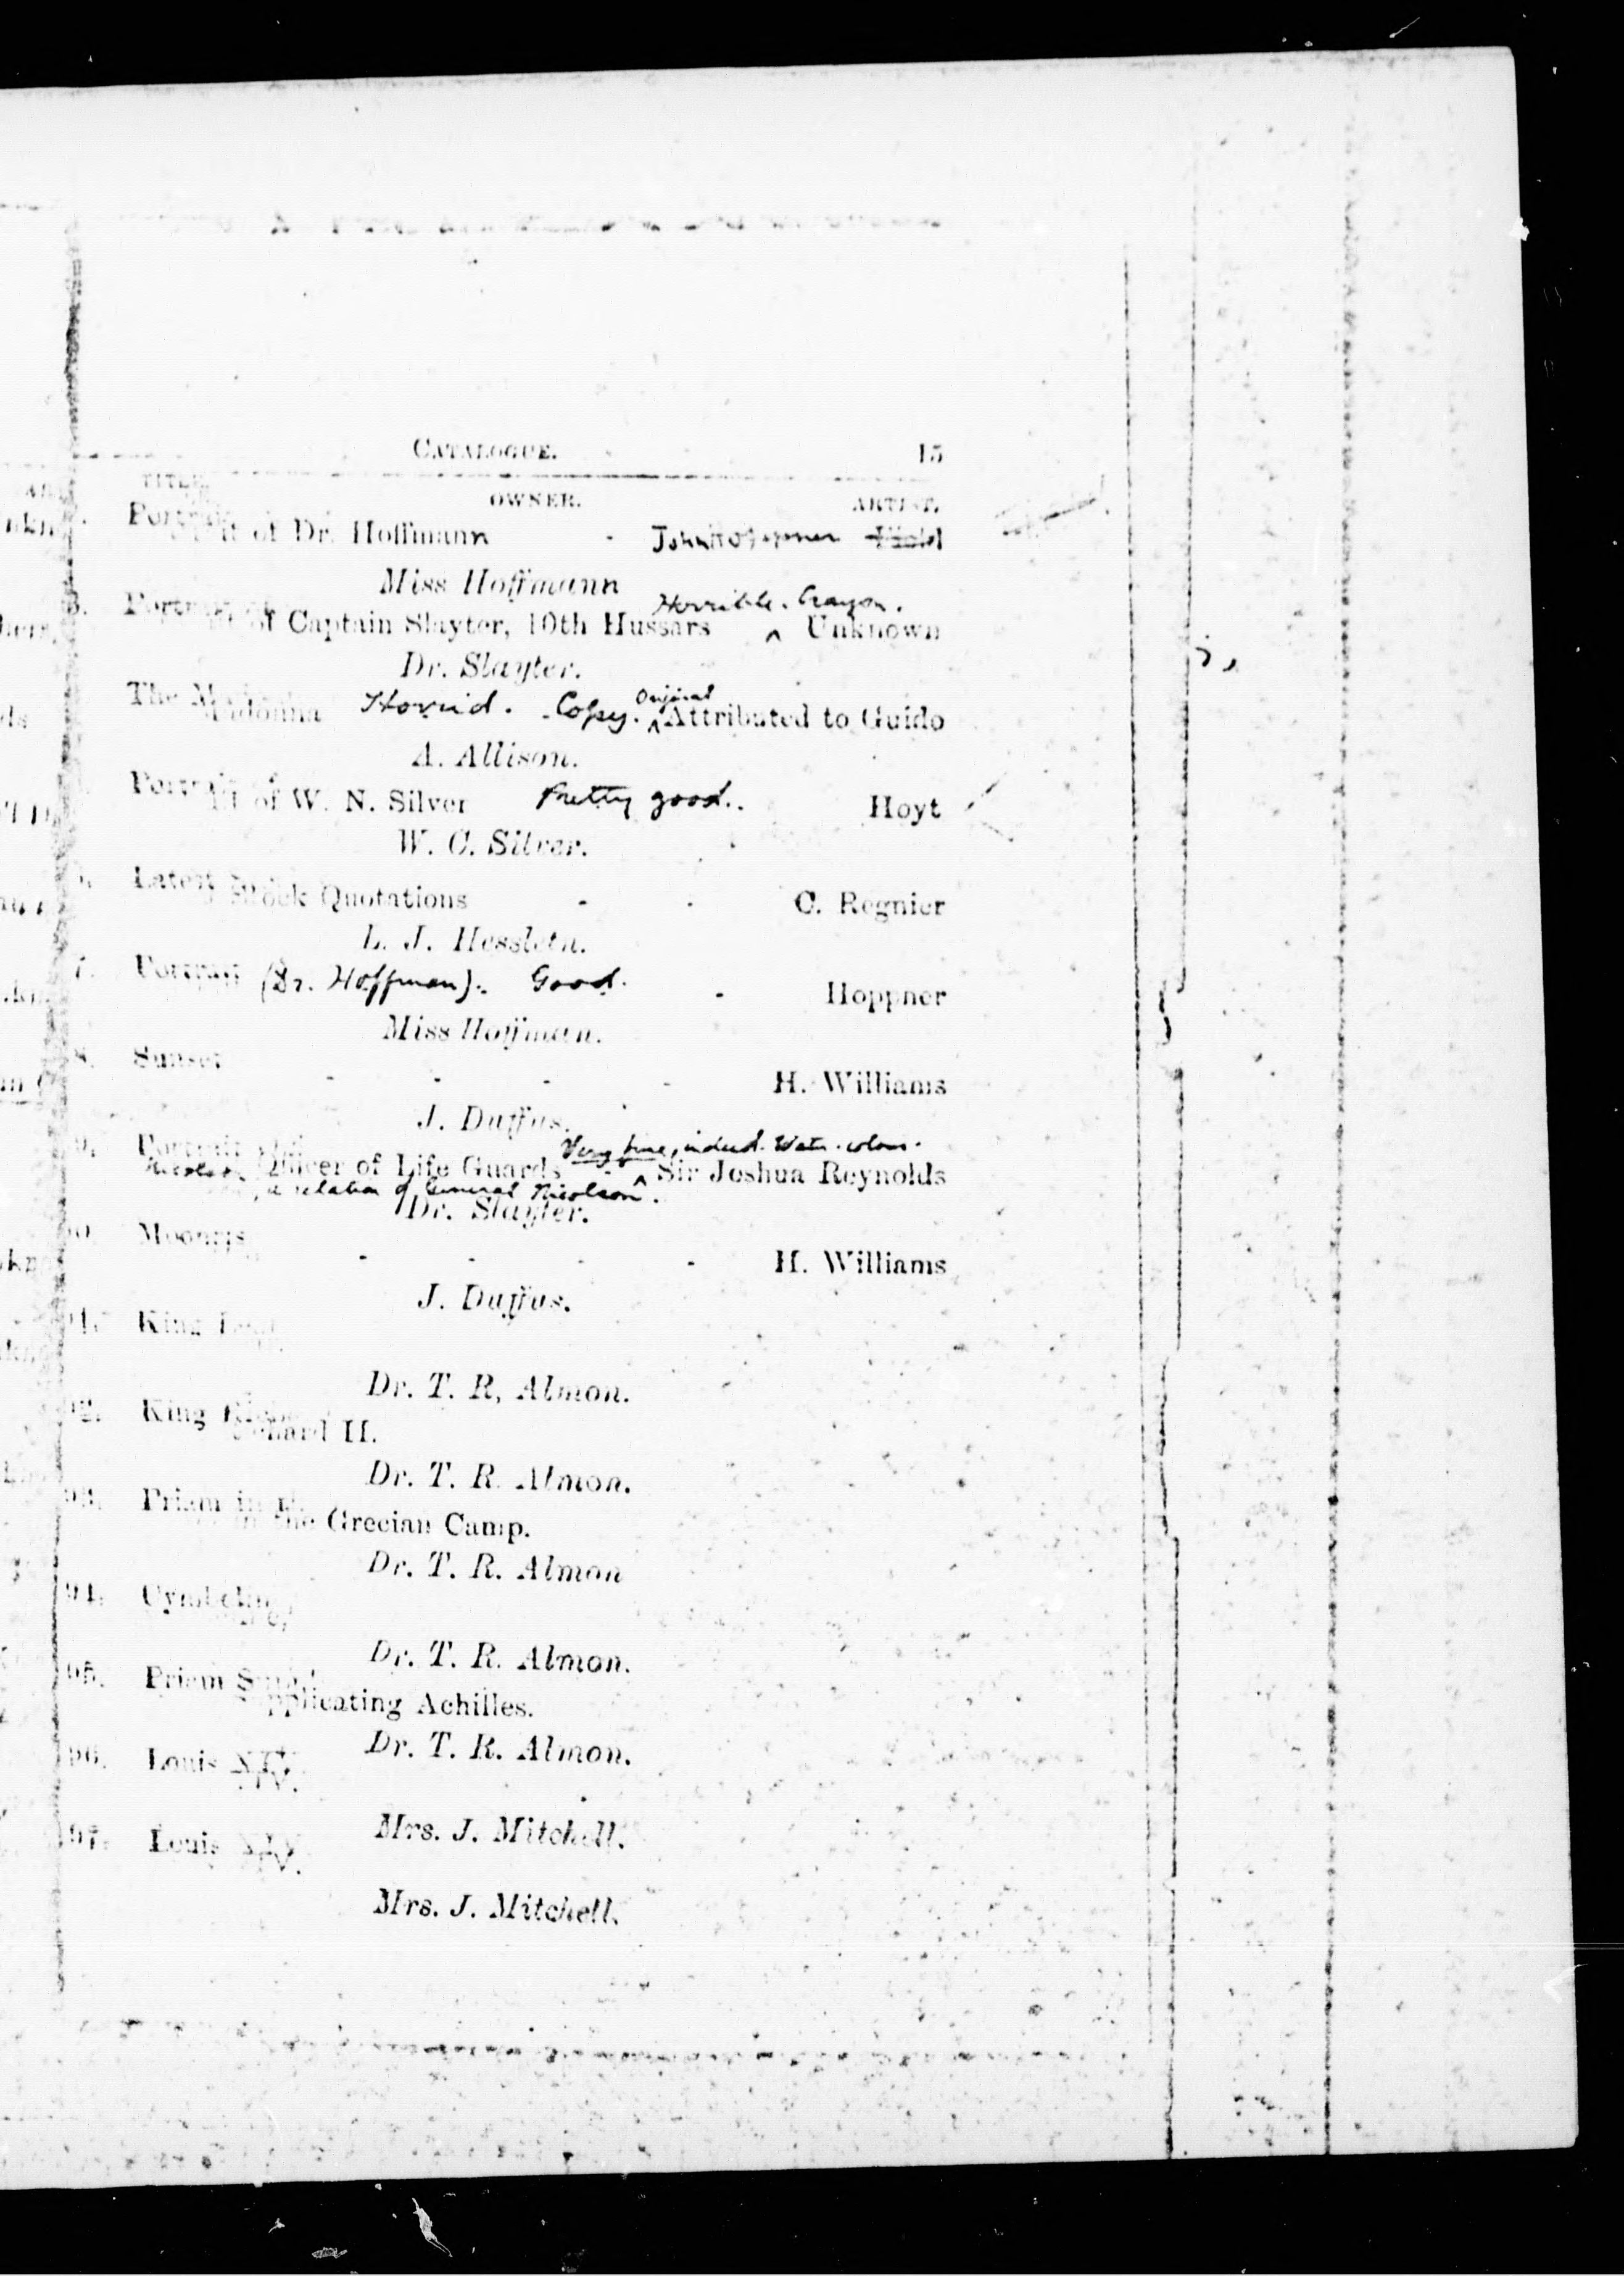 CATALOGUE. 15
TITLE. OWNER. ARTIST.
Portrait of Dr. Hoffmann - John Hoppner
Miss Hoffmann
Horrible. Crayon.
Portrait of Captain Slayter, 10th Hussars ^ Unknown
Dr. Slayter.
The Madonna Horrid. - Copy. Original ^ Attributed to Guido
A. Allison.
Portrait of W. N. Silver Pretty good. Hoyt
W. C. Silver.
Latest Stock Quotations - - C. Regnier
L. J. Hesslein.
7. Portrait (Dr. Hoffman). Good. - Hoppner
Miss Hoffman.
8. Sunset - - - - H. Williams
J. Duffus.
Very fine, indeed. Water-colour.
9. Portrait Officer of Life Guards - ^ Sir Joshua Reynolds
a relation of General Nicolson.
Dr. Slayter.
Moonrise - - - - H. Williams
J. Duffus.
91. King
Dr. T. R, Almon.
92. King Richard II.
Dr. T. R. Almon.
93. Priam in the Grecian Camp.
Dr. T. R. Almon
94. Cymbeline,
Dr. T. R. Almon.
95. Priam Supplicating Achilles.
Dr. T. R. Almon.
96. Louis XIV.
Mrs. J. Mitchell.
97. Louis XIV.
Mrs. J. Mitchell.